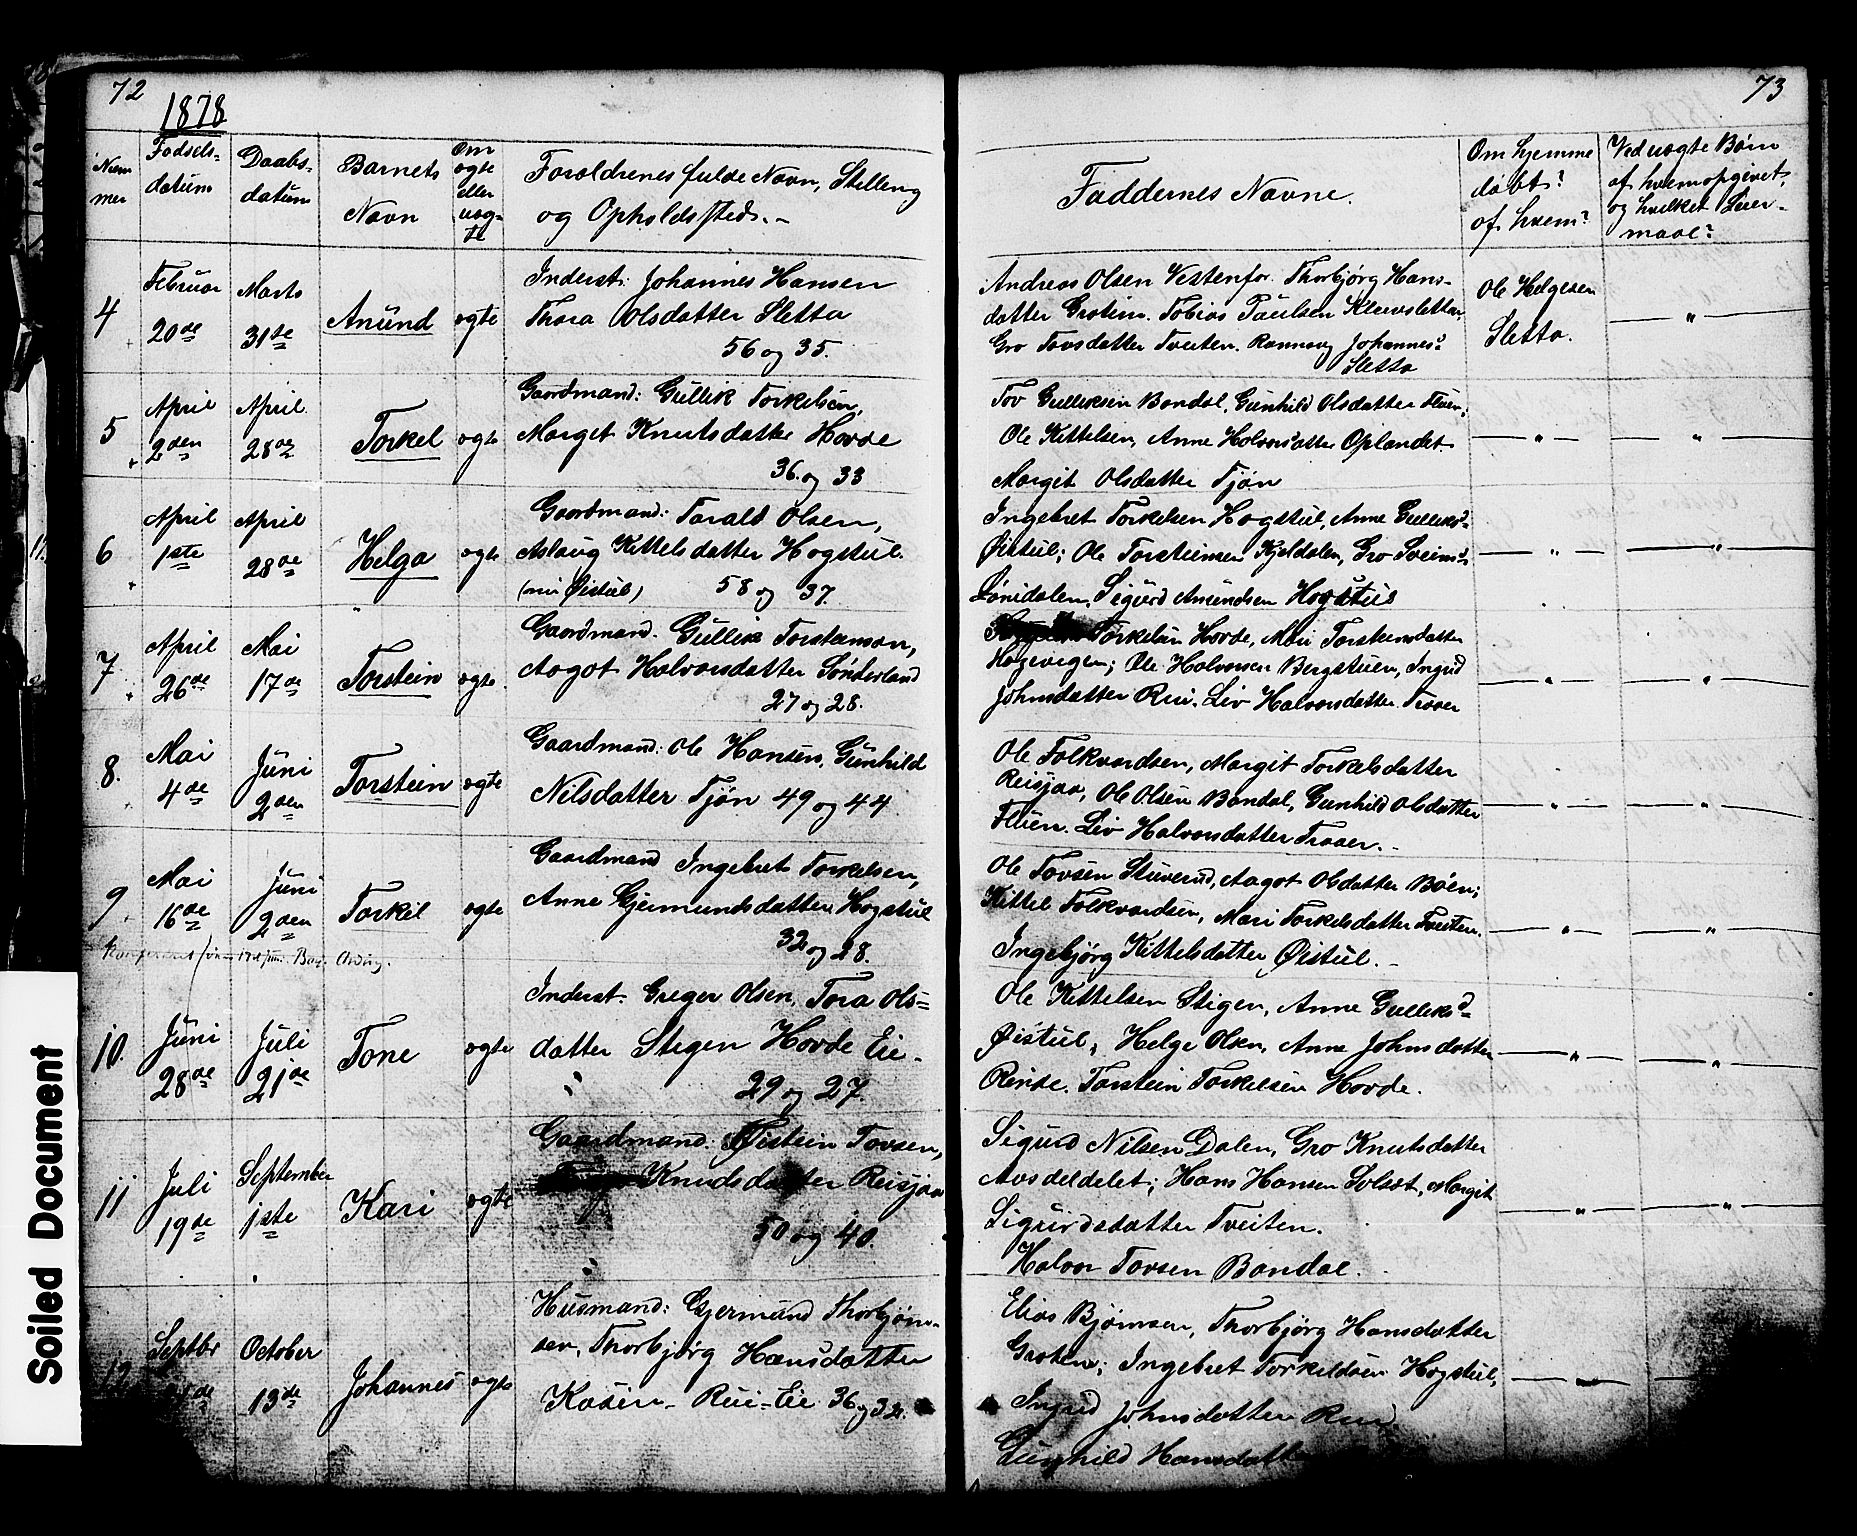 72
1878
Nummer
Fødselsdatum
Daabsdatum
Barnets Navn
Om ægte eller uægte
Forældrenes fulde Navn, Stilling
og Opholdssted.
4
Februar
20de
Marts
31te
Anund
ægte
Inderst: Johannes Hansen
Thora Olsdatter Sletta
56 og 35.
5
April
2den
April
28de
Torkel
ægte
Gaardmand: Gullik Torkelsen,
Margit Knutsdatter Hovde
36. og 33
6
April
1ste
April
28de
Helga
ægte
Gaardmand: Tarald Olsen,
Aslaug Kittelsdatter Høgstul.
Øistul) 58 og 37.
7
April
26de
Mai
17de
Torstein
ægte
Gaardmand. Gullik Torsteinson,
Aagot Halvorsdatter Sønderland
27 og 28.
8.
Mai
4de
Juni
2den
Torstein
ægte
Gaardmand: Ole Hansen, Gunhild
Nilsdatter Tjøn 49 og 44.
9
Mai
16de
Juni
2den
Torkil
ægte
Gaardmand Ingebret Torkelsen,
Anne Gjermundsdatter Høgstul
32 og 28.
10.
Juni
28de
Juli
21de
Tone
ægte
Inderst. Greger Olsen, Tora Ols=
datter Stigen Hovde Eie.
29 og 27.
11
Juli
19de
September
1ste
Kari
ægte
Gaardmand: Øistein Tovsen,
Knudsdatter Reisjaa
50 og 40.
12
Septbr
October
13de
Johannes
ægte
Husmand: Gjermund Thorbjørn-
sen, Thorbjørg Hansdatter
Kåsin- Rui-Eie 36 og 32.
73
Faddernes Navne.
Om hjemme
døbt?
af hvem?
Ved uægte Børn
af hvem opgivet,
og hvilket Leier-
maal?
Andreas Olsen Vestenfor. Thorbjørg Hans-
datter Grotin. Tobias Paulsen Kleivsletten,
Gro Tovsdatter Tveiten. Rannug Johannesd
Sletta
Ole Helgesen
Sletta.
— " —
Tov Gulliksen Bondal, Gunhild Olsdatter Fluen,
Ole Kittelsen, Anne Halvorsdatter Oplandet.
Margit Olsdatter Tjøn
— " — — " —
Ingebret Torkelsen Høgstul, Anne Gulliksd
Øistul; Ole Torsteinsen Kjeldalen, Gro Sveinsd
Lønidalen, Sigurd Amundsen Høgstul
— " — — " —
Torkelsen Hovde, Mari Torsteinsdatter
Hagevegen; Ole Halvorsen Bergstuen, Ingrid
Johnsdatter Rui. Liv Halvorsdatter Traaer
— " — — " —
Ole Folkvardsen, Margit Torkelsdatter
Reisjaa, Ole Olsen Bondal, Gunhild Olsdatter
Fluen. Liv Halvorsdatter Traaer.
— " — — " —
Ole Tovsen Stuverud, Aagot Olsdatter Bøen;
Kittel Folkvardsen, Mari Torkelsdatter Tveiten.
Ingebjørg Kittelsdatter Øistul.
— " — — " —
Ole Kittelsen Stigen, Anne Gulliksd
Øistul; Helge Olsen, Anne Johnsdatter
Rinde. Torstein Torkelsen Hovde.
— " — — " —
Sigurd Nilsen Dalen, Gro Knutsdatter
Avsdeldelet; Hans Hansen Solset, Margit
Sigurdsdatter Tveiten.
Halvor Tovsen Bondal.
— " — — " —
Elias Bjørnsen, Thorbjørg Hansdatter
Groten; Ingebret Torkeldsen Høgstul,
Ingrid Johnsdatter Rui.
Gunhild Hansdatter
— " —
Soiled Document